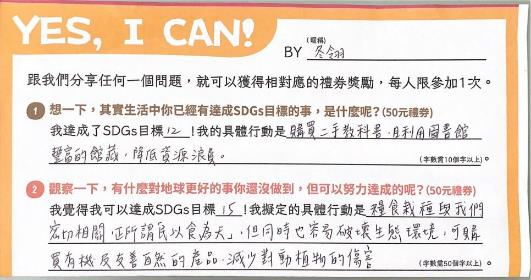 YES, I CAN!
(暱稱)
BY 冬翎
跟我們分享任何一個問題，就可以獲得相對應的禮券獎勵，每人限參加1次。
1 想一下，其實生活中你已經有達成SDGs目標的事，是什麼呢？(50元禮券)
我達成了SDGs目標 12 ！我的具體行動是 購買二手教科書，且利用圖書館
豐富的館藏，降低資源浪費。
(字數需10個字以上)。
2 觀察一下，有什麼對地球更好的事你還沒做到，但可以努力達成的呢？(50元禮券)
我覺得我可以達成SDGs目標 15 ！我擬定的具體行動是 糧食栽種與我們
密切相關，正所謂「民以食為天」，但同時也容易破壞生態環境，可購
買有機及友善自然的產品，減少對動植物的傷害
(字數需50個字以上)。